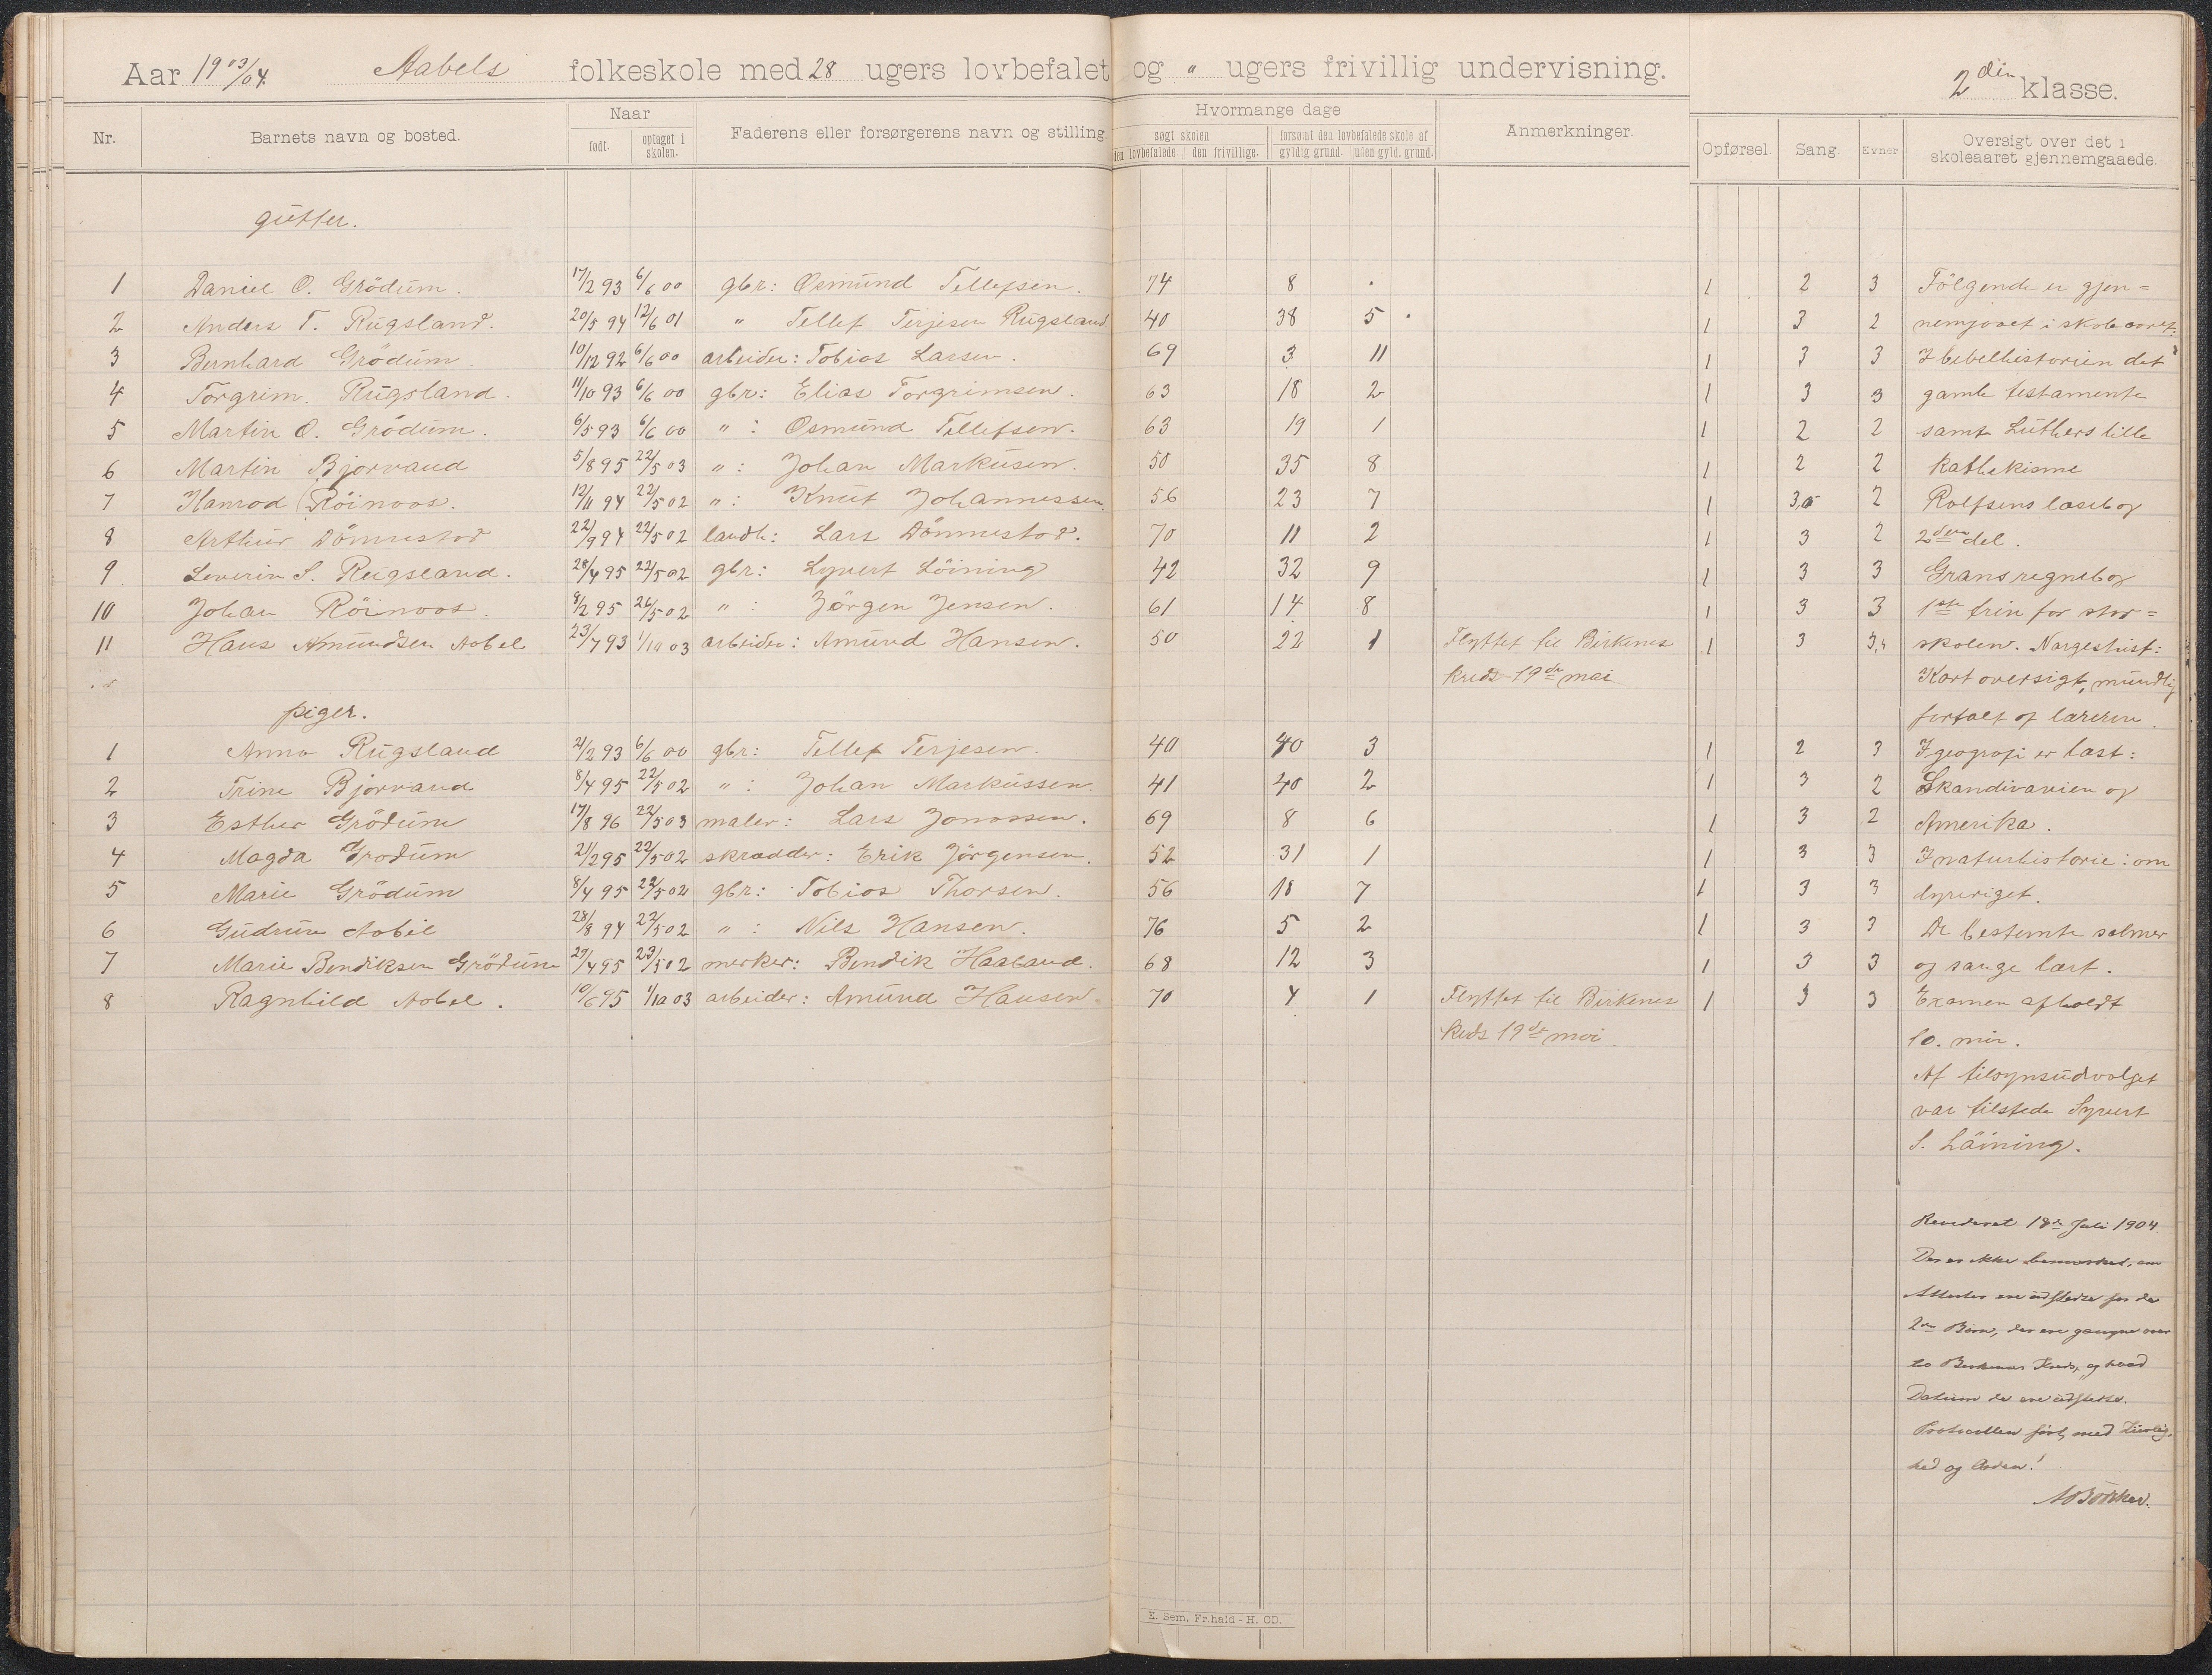 Aar 1903/04. Aabels folkeskole med 28 ugers lovbefalet og " ugers frivillig undervisning. 2den klasse.
Nr. Barnets navn og bosted. Naar født. optaget i skolen. Faderens eller forsørgerens navn og stilling. Hvormange dage søgt skolen den lovbefalede den frivillige. forsømt den lovbefalede skole af gyldig grund. uden gyld. grund. Anmerkninger. Opførsel. Sang. Evner Oversigt over det i skoleaaret gjennemgaaede.
gutter.
1 Daniel O. Grödum. 17/2 93 6/6 00 gbr: Osmund Tellefsen. 74 8 . 1 2 3 Fölgende er gjen=
2 Anders T. Rugsland. 20/5 94 12/6 01 " Tellef Terjesen Rugsland 40 38 5 1 3 2 nemgaaet i skoleaaret:
3 Bernhard Grödum 10/12 92 6/6 00 arbeider: Tobias Larsen. 69 3 11 1 3 3 I bibelhistorien det
4 Torgrim. Rugsland. 11/10 93 6/6 00 gbr: Elias Torgrimsen. 63 18 2 1 3 3 gamle testamente
5 Martin O. Grödum. 6/5 93 6/6 00 " : Osmund Tellefsen. 63 19 1 1 2 2 samt Luthers lille
6 Martin Bjorvand 5/8 95 22/5 03 " : Johan Markusen. 50 35 8 1 2 2 kathekisme
7 Hanrod Röinoos. 12/11 94 22/5 02 " : Knut Johannessen. 56 23 7 1 3,5 2 Rolfsens læsebog
8 Arthur Dömmestad 22/9 94 22/5 02 landh: Lars Dömmestad. 70 11 2 1 3 2 2den del.
9 Severin S. Rugsland. 28/4 95 22/5 02 gbr: Syvert Löining 42 32 9 1 3 3 Grans regnebog
10 Johan Röinoos. 8/2 95 26/5 02 " : Jörgen Jensen. 61 14 8 1 3 3 1ste trin for stor=
11 Hans Amundsen Aabel 23/7 93 1/10 03 arbeider: Amund Hansen. 50 22 1 Flyttet til Birkenes 1 3 3, skolen. Norgeshist:
kreds 19de mai Kort oversigt, mundlig
piger. fortalt af læreren.
1 Anna Rugsland 21/2 93 6/6 00 gbr: Tellef Terjesen. 40 40 3 1 2 3 I geografi er læst:
2 Trine Bjorvand 8/4 95 22/5 02 " : Johan Markussen. 41 40 2 1 3 2 Skandivavien og
3 Esther Grödum 17/8 96 22/5 03 maler: Lars Jonassen. 69 8 6 1 3 2 Amerika.
4 Magda Grödum 21/2 95 22/5 02 skrædder: Erik Jörgensen. 52 31 1 1 3 3 I naturhistorie: om
5 Marie Grödum 8/4 95 22/5 02 gbr: Tobias Thorsen. 56 18 7 1 3 3 dyreriget.
6 Gudrun Aabel 28/8 94 22/5 02 " : Nils Hansen. 76 5 2 1 3 3 De bestemte salmer
7 Marie Bendiksen Grödum 29/4 95 23/5 02 merker: Bendik Haaland. 68 12 3 1 3 3 og sange lært.
8 Ragnhild Aabel. 10/6 95 1/10 03 arbeider: Amund Hansen. 70 4 1 Flyttet til Birkenes 1 3 3 Examen afholdt
kreds 19de mai. 10. mai.
Af tilsynsudvalget
var tilstede Syvert
S. Löining.
Revideret 18de Juli 1904.
Der er ikke bemærket, om
Attester ere udstedte for de
2de Börn, der ere gangne over
til Birkenes Kreds, og hvad
Datum de ere udstedte.
Protocollen ført med Zirlig-
hed og Orden!
E. Sem, Fr.hald - H. CD.